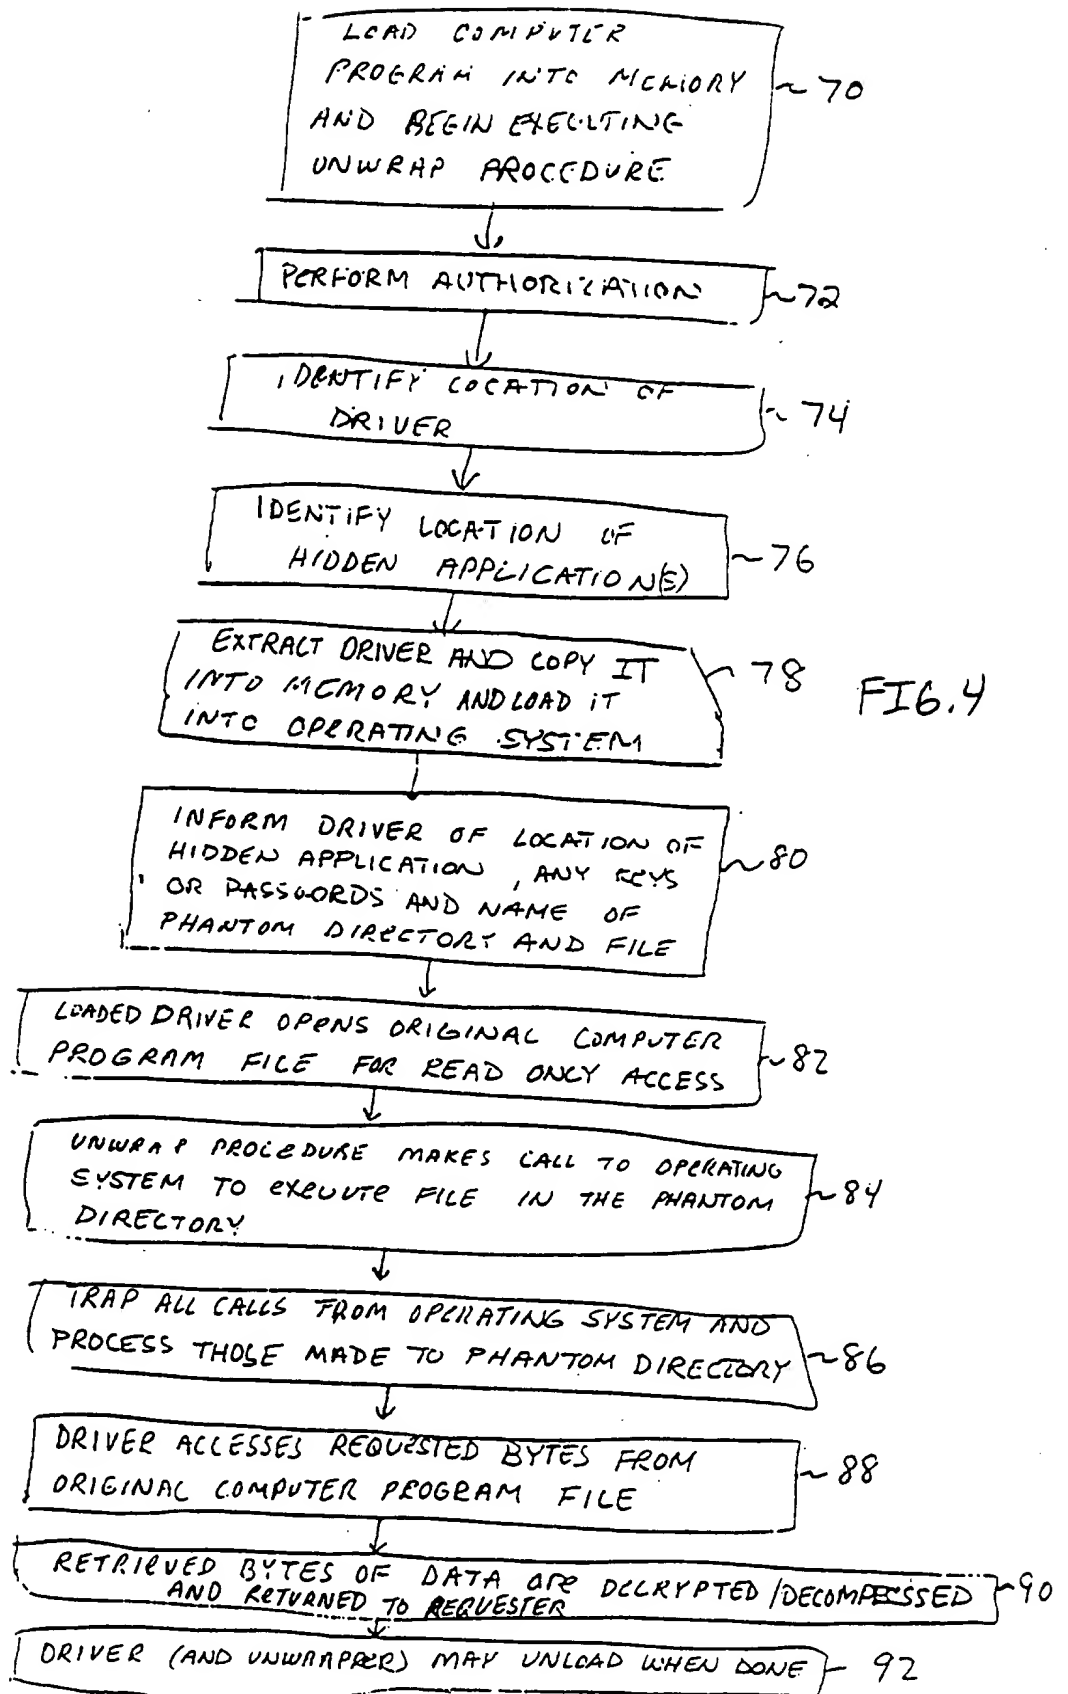 LOAD COMPUTER
PROGRAM INTO MEMORY
AND BEGIN EXECUTING
UNWRAP PROCEDURE
70
PERFORM AUTHORIZATION
72
IDENTIFY LOCATION OF
DRIVER
74
IDENTIFY LOCATION OF
HIDDEN APPLICATION(S)
76
EXTRACT DRIVER AND COPY IT
INTO MEMORY AND LOAD IT
INTO OPERATING SYSTEM
78
FIG.4
INFORM DRIVER OF LOCATION OF
HIDDEN APPLICATION, ANY KEYS
OR PASSWORDS AND NAME OF
PHANTOM DIRECTORY AND FILE
80
LOADED DRIVER OPENS ORIGINAL COMPUTER
PROGRAM FILE FOR READ ONLY ACCESS
82
UNWRAP PROCEDURE MAKES CALL TO OPERATING
SYSTEM TO EXECUTE FILE IN THE PHANTOM
DIRECTORY
84
TRAP ALL CALLS FROM OPERATING SYSTEM AND
PROCESS THOSE MADE TO PHANTOM DIRECTORY
86
DRIVER ACCESSES REQUESTED BYTES FROM
ORIGINAL COMPUTER PROGRAM FILE
88
RETRIEVED BYTES OF DATA ARE DECRYPTED/DECOMPRESSED
AND RETURNED TO REQUESTER
90
DRIVER (AND UNWRAPPER) MAY UNLOAD WHEN DONE
92